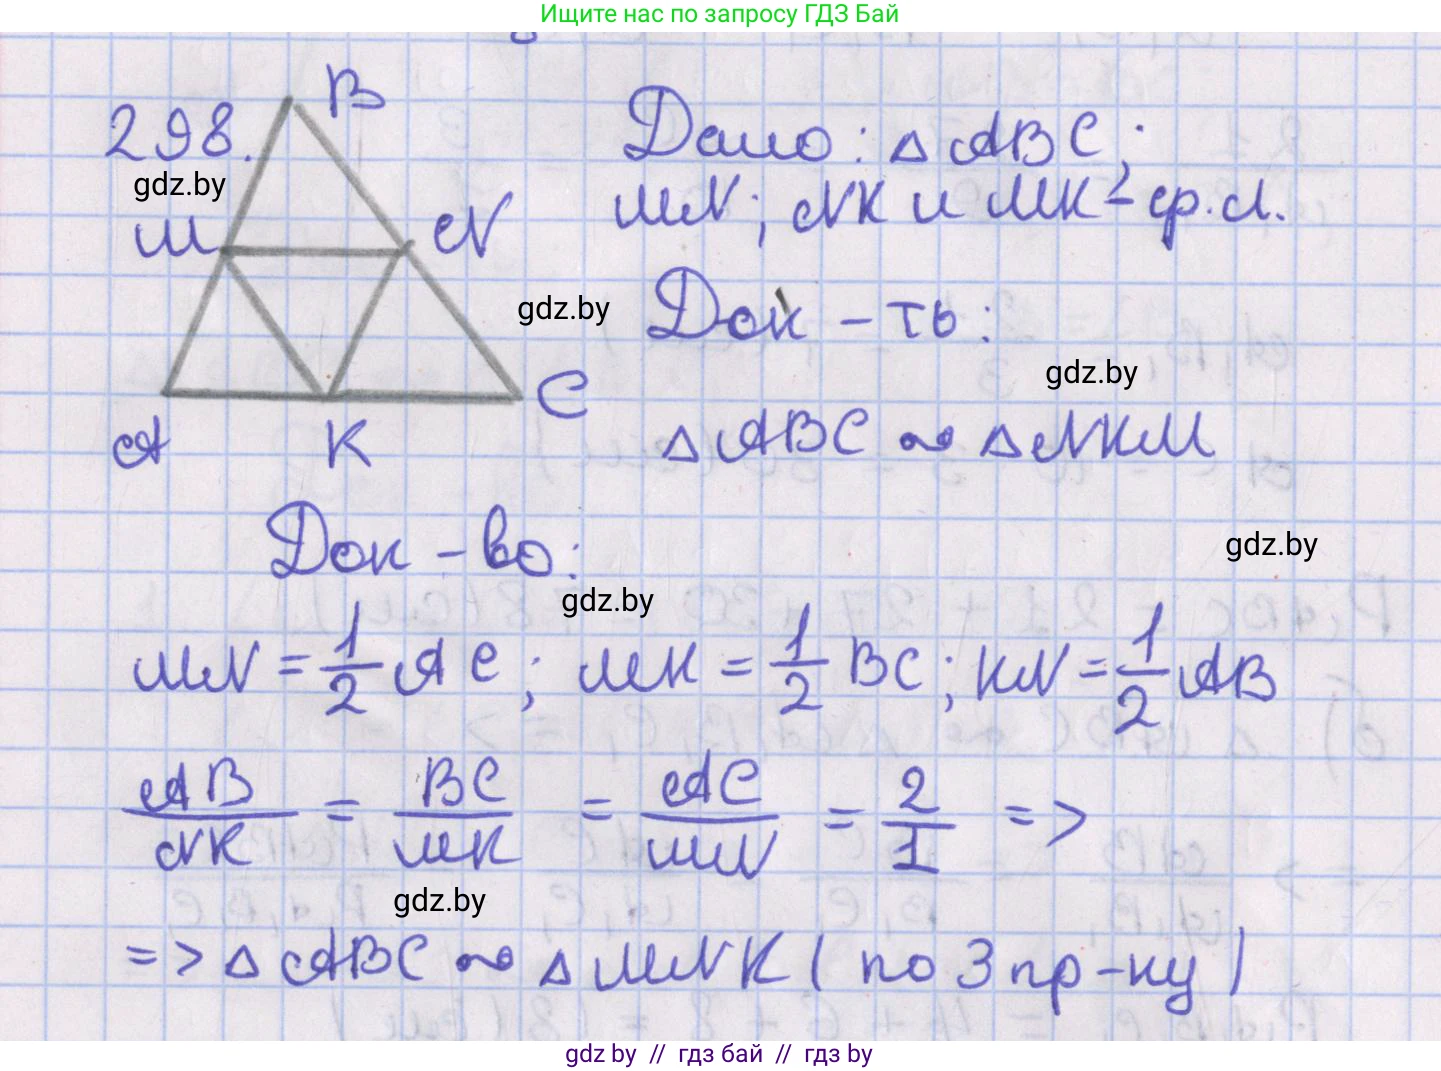 Ищите нас по запросу ГДЗ Бай
298.
B
gdz.by
M
N
A
K
C
Дано: △ ABC;
MN; NK и MK - ср. л.
gdz.by
Док - ть:
gdz.by
△ ABC ∾ △ NKM
Док - во:
gdz.by
gdz.by
MN = 1/2 AC; MK = 1/2 BC; KN = 1/2 AB
AB/NK = BC/MK = AC/MN = 2/1 =>
gdz.by
=> △ ABC ∾ △ MNK ( по 3 пр-ку )
gdz.by // гдз бай // гдз by